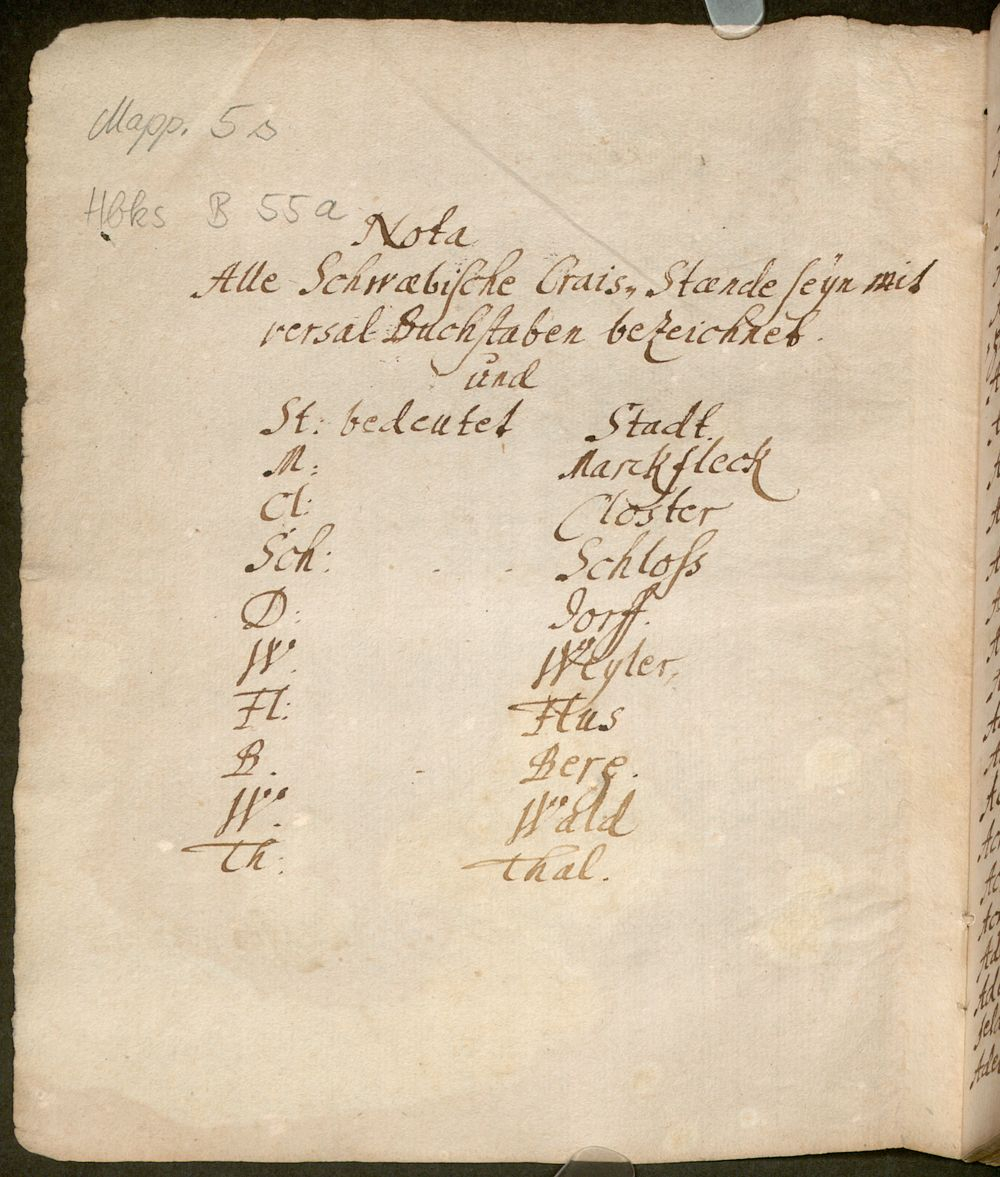 Mapp. 5 s
Hbks B 55a
Nota
Alle Schwæbische Crais„ Stænde seÿn mit
versal Buchstaben bezeichnet.
und
St: bedeutet Stadt.
M: Marckfleck
Cl: Closter
Sch: . . Schloss
D: Dorff.
W. Weyler,
H: Hus
B. . Berg.
W. Wald
Th: Thal.